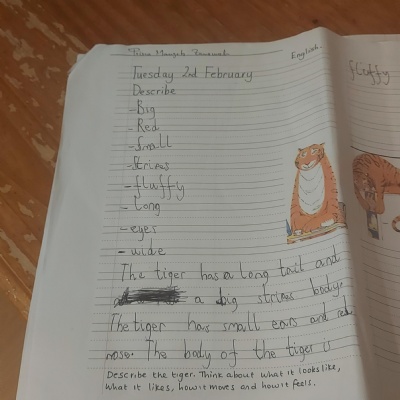 English.
Tuesday 2nd February
Describe
-Big
-Red
-Small
-Stripes
-fluffy
-Long
-eyes
-wide
The tiger has a long tail and
a big stripes body.
The tiger has small ears and red
nose. The body of the tiger is
Describe the tiger. Think about what it looks like,
what it likes, how it moves and how it feels.
fluffy